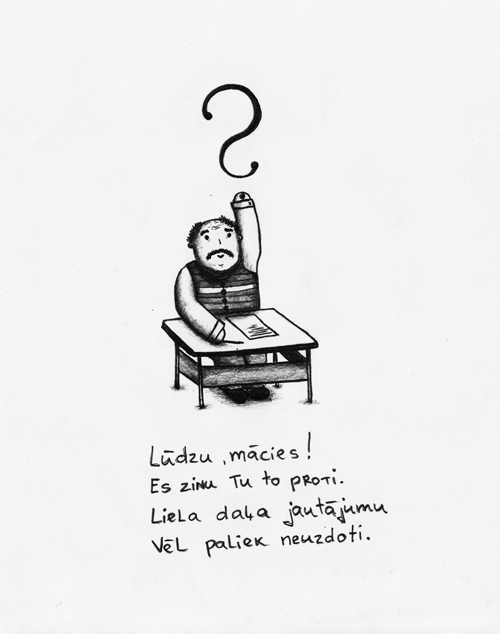 ?
Lūdzu, mācies!
Es zinu Tu to proti.
Liela daļa jautājumu
Vēl paliek neuzdoti.